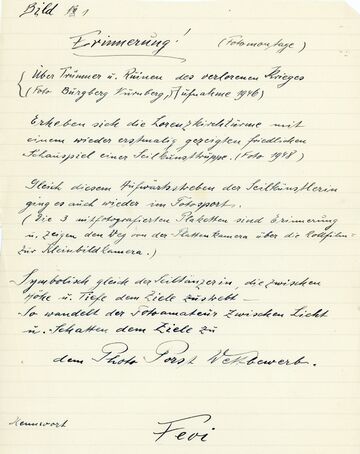 Bild 1
Erinnerung! (Fotomontage)
Über Trümmer u. Ruinen des verlorenen Krieges
(Foto Burgberg Nürnberg, Aufnahme 1946)
Erheben sich die Lorenzkirchtürme mit
einem wieder erstmalig gezeigten friedlichen
Schauspiel einer Seilkunsttruppe. (Foto 1948)
Gleich diesem Aufwärtsstreben der Seilkünstlerin
ging es auch wieder im Fotosport.
(Die 3 mitfotografierten Plaketten sind Erinnerung
u. zeigen den Weg von der Plattenkamera über die Rollfilm-
zur Kleinbildkamera.)
Symbolisch gleich der Seiltänzerin, die zwischen
Höhe u. Tiefe dem Ziele zustrebt –
So wandelt der Fotoamateur zwischen Licht
u. Schatten dem Ziele zu
dem Photo Porst Wettbewerb.
Kennwort
Fevi